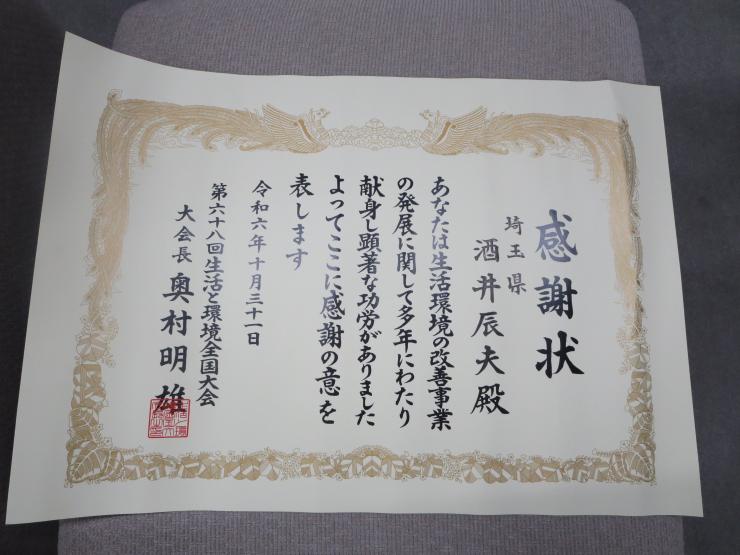 感謝状
埼玉県
酒井辰夫殿
あなたは生活環境の改善事業
の発展に関して多年にわたり
献身し顕著な功労がありました
よってここに感謝の意を
表します
令和六年十月三十一日
第六十八回生活と環境全国大会
大会長 奥村明雄